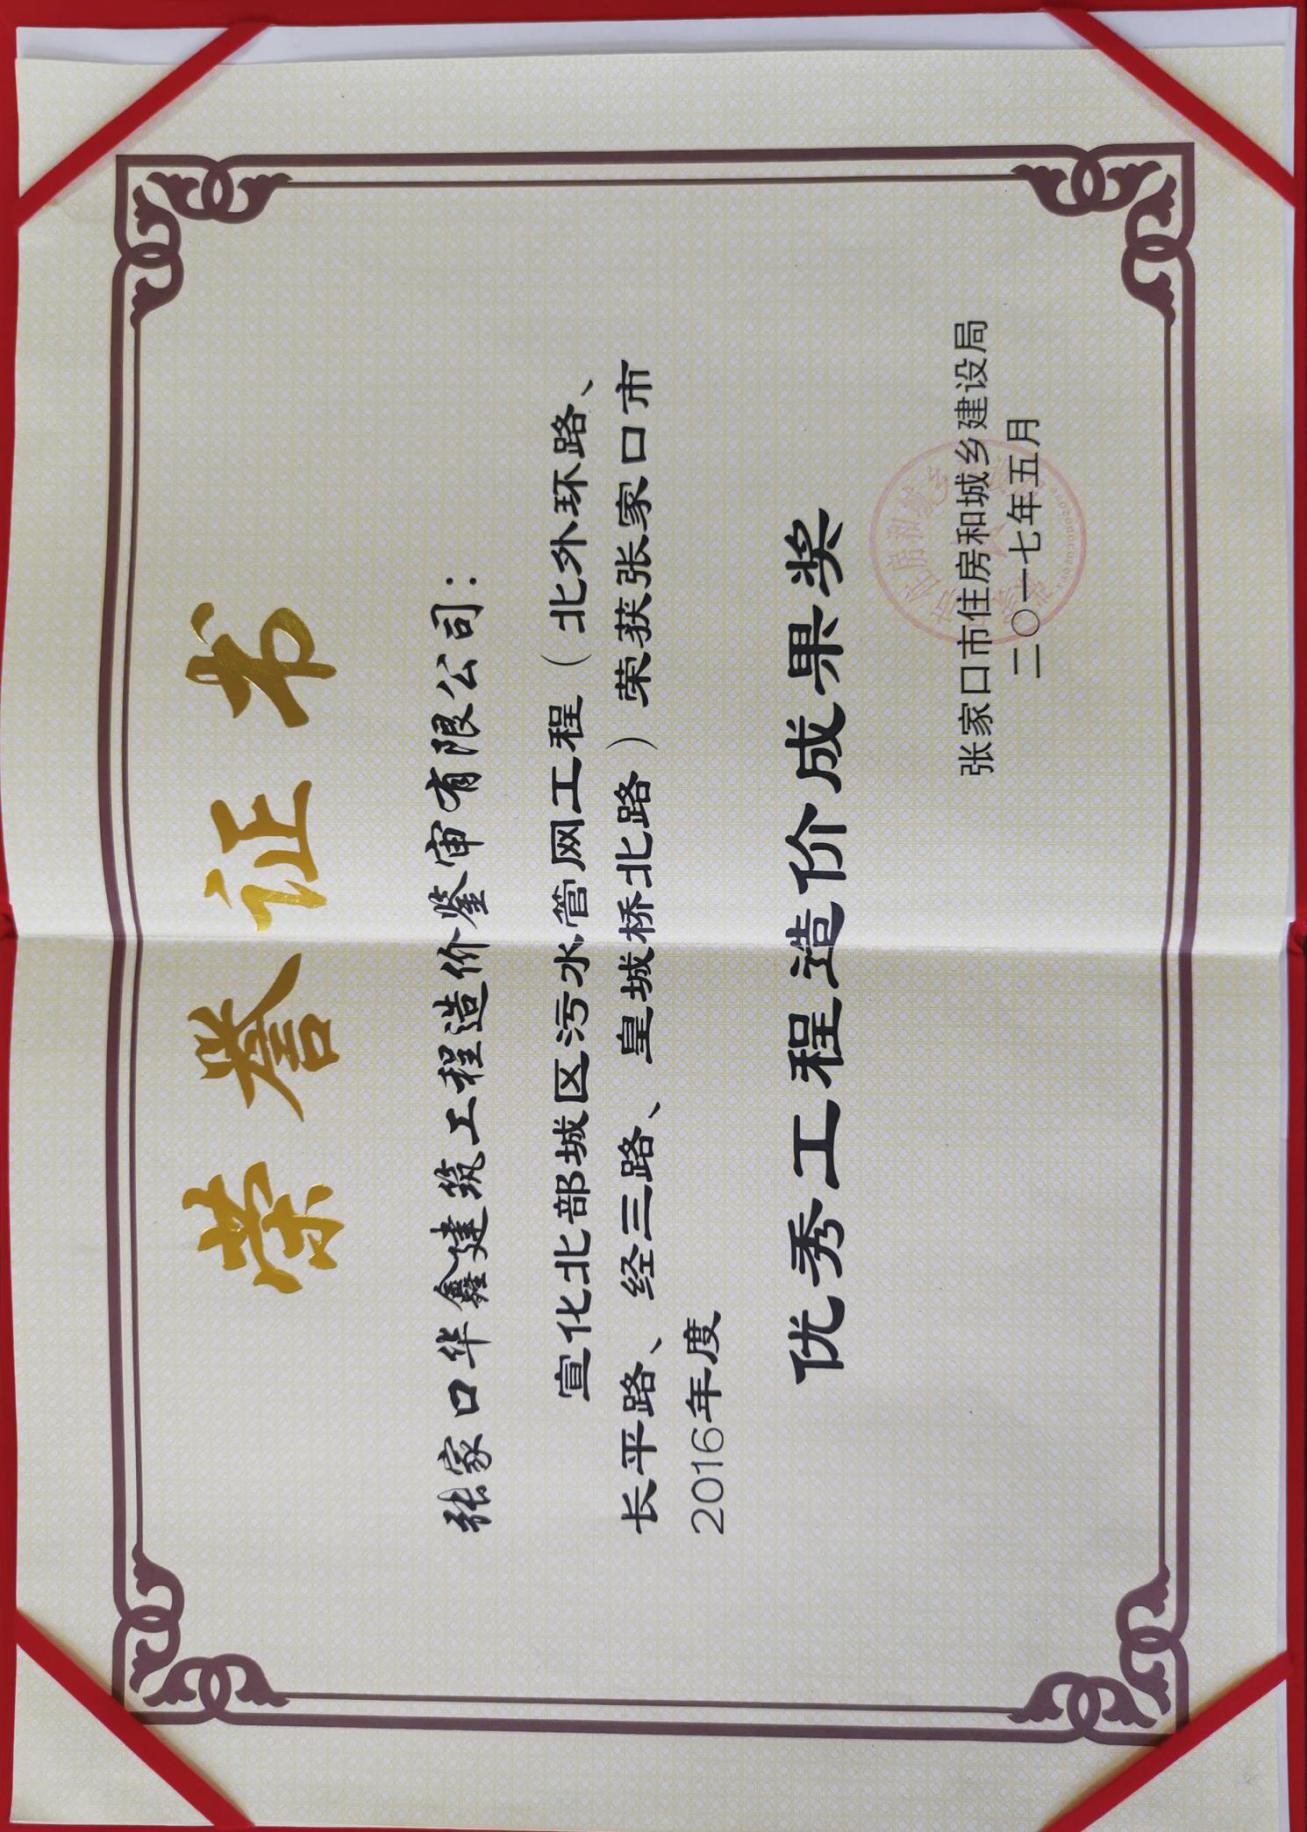 荣誉证书
张家口华鑫建筑工程造价鉴审有限公司：
宣化北部城区污水管网工程（北外环路、
长平路、经三路、皇城桥北路）荣获张家口市
2016年度
优秀工程造价成果奖
张家口市住房和城乡建设局
二〇一七年五月